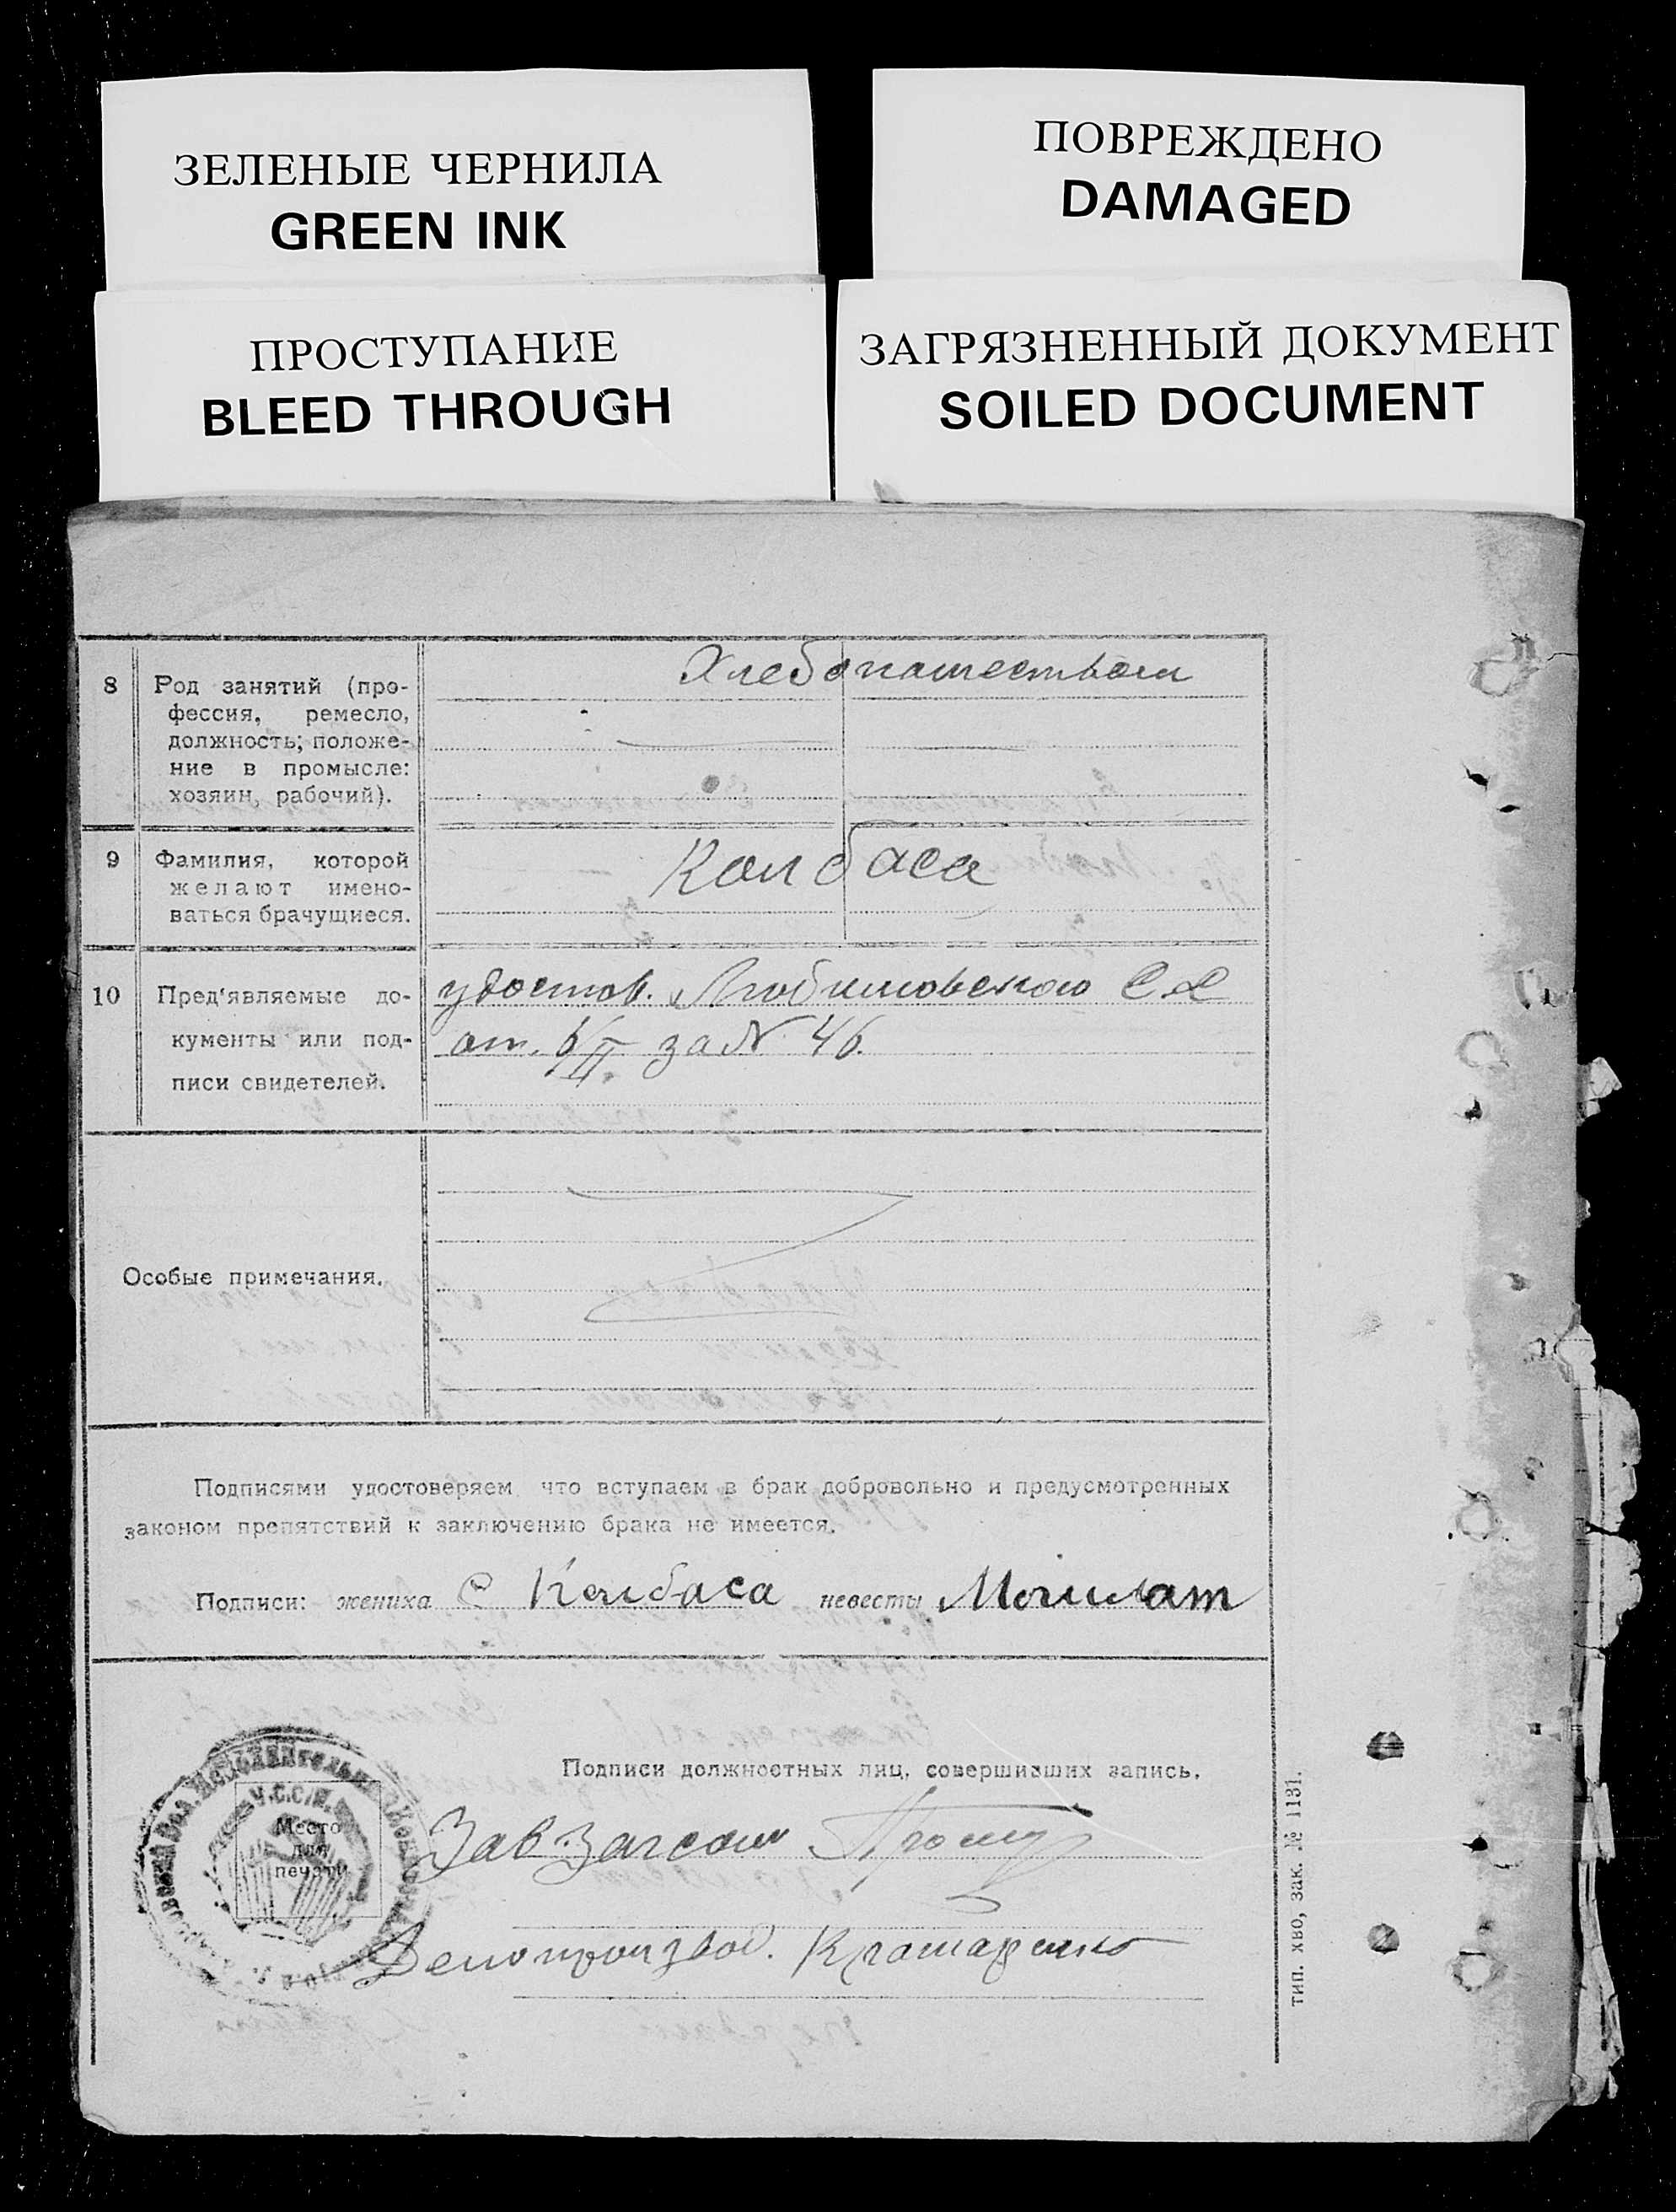 ЗЕЛЕНЫЕ ЧЕРНИЛА
GREEN INK
ПОВРЕЖДЕНО
DAMAGED
ПРОСТУПАНИЕ
BLEED THROUGH
ЗАГРЯЗНЕННЫЙ ДОКУМЕНТ
SOILED DOCUMENT
8 Род занятий (про-
фессия, ремесло,
должность; положе-
ние в промысле:
хозяин, рабочий).
Хлебопашеством
9 Фамилия, которой
желают имено-
ваться брачущиеся.
Колбаса
10 Пред'являемые до-
кументы или под-
писи свидетелей.
удостов. Любимовского С.С
от. 6/II. за N 46.
Особые примечания.
Подписями удостоверяем что вступаем в брак добровольно и предусмотренных
законом препятствий к заключению брака не имеется.
Подписи: жениха С Колбаса невесты
Подписи должностных лиц, совершивших запись.
У.С.С.Р.
Место
для
печати
Зав. Загсом
Делопроизвод.
тип. ХВО, зак. № 1131.